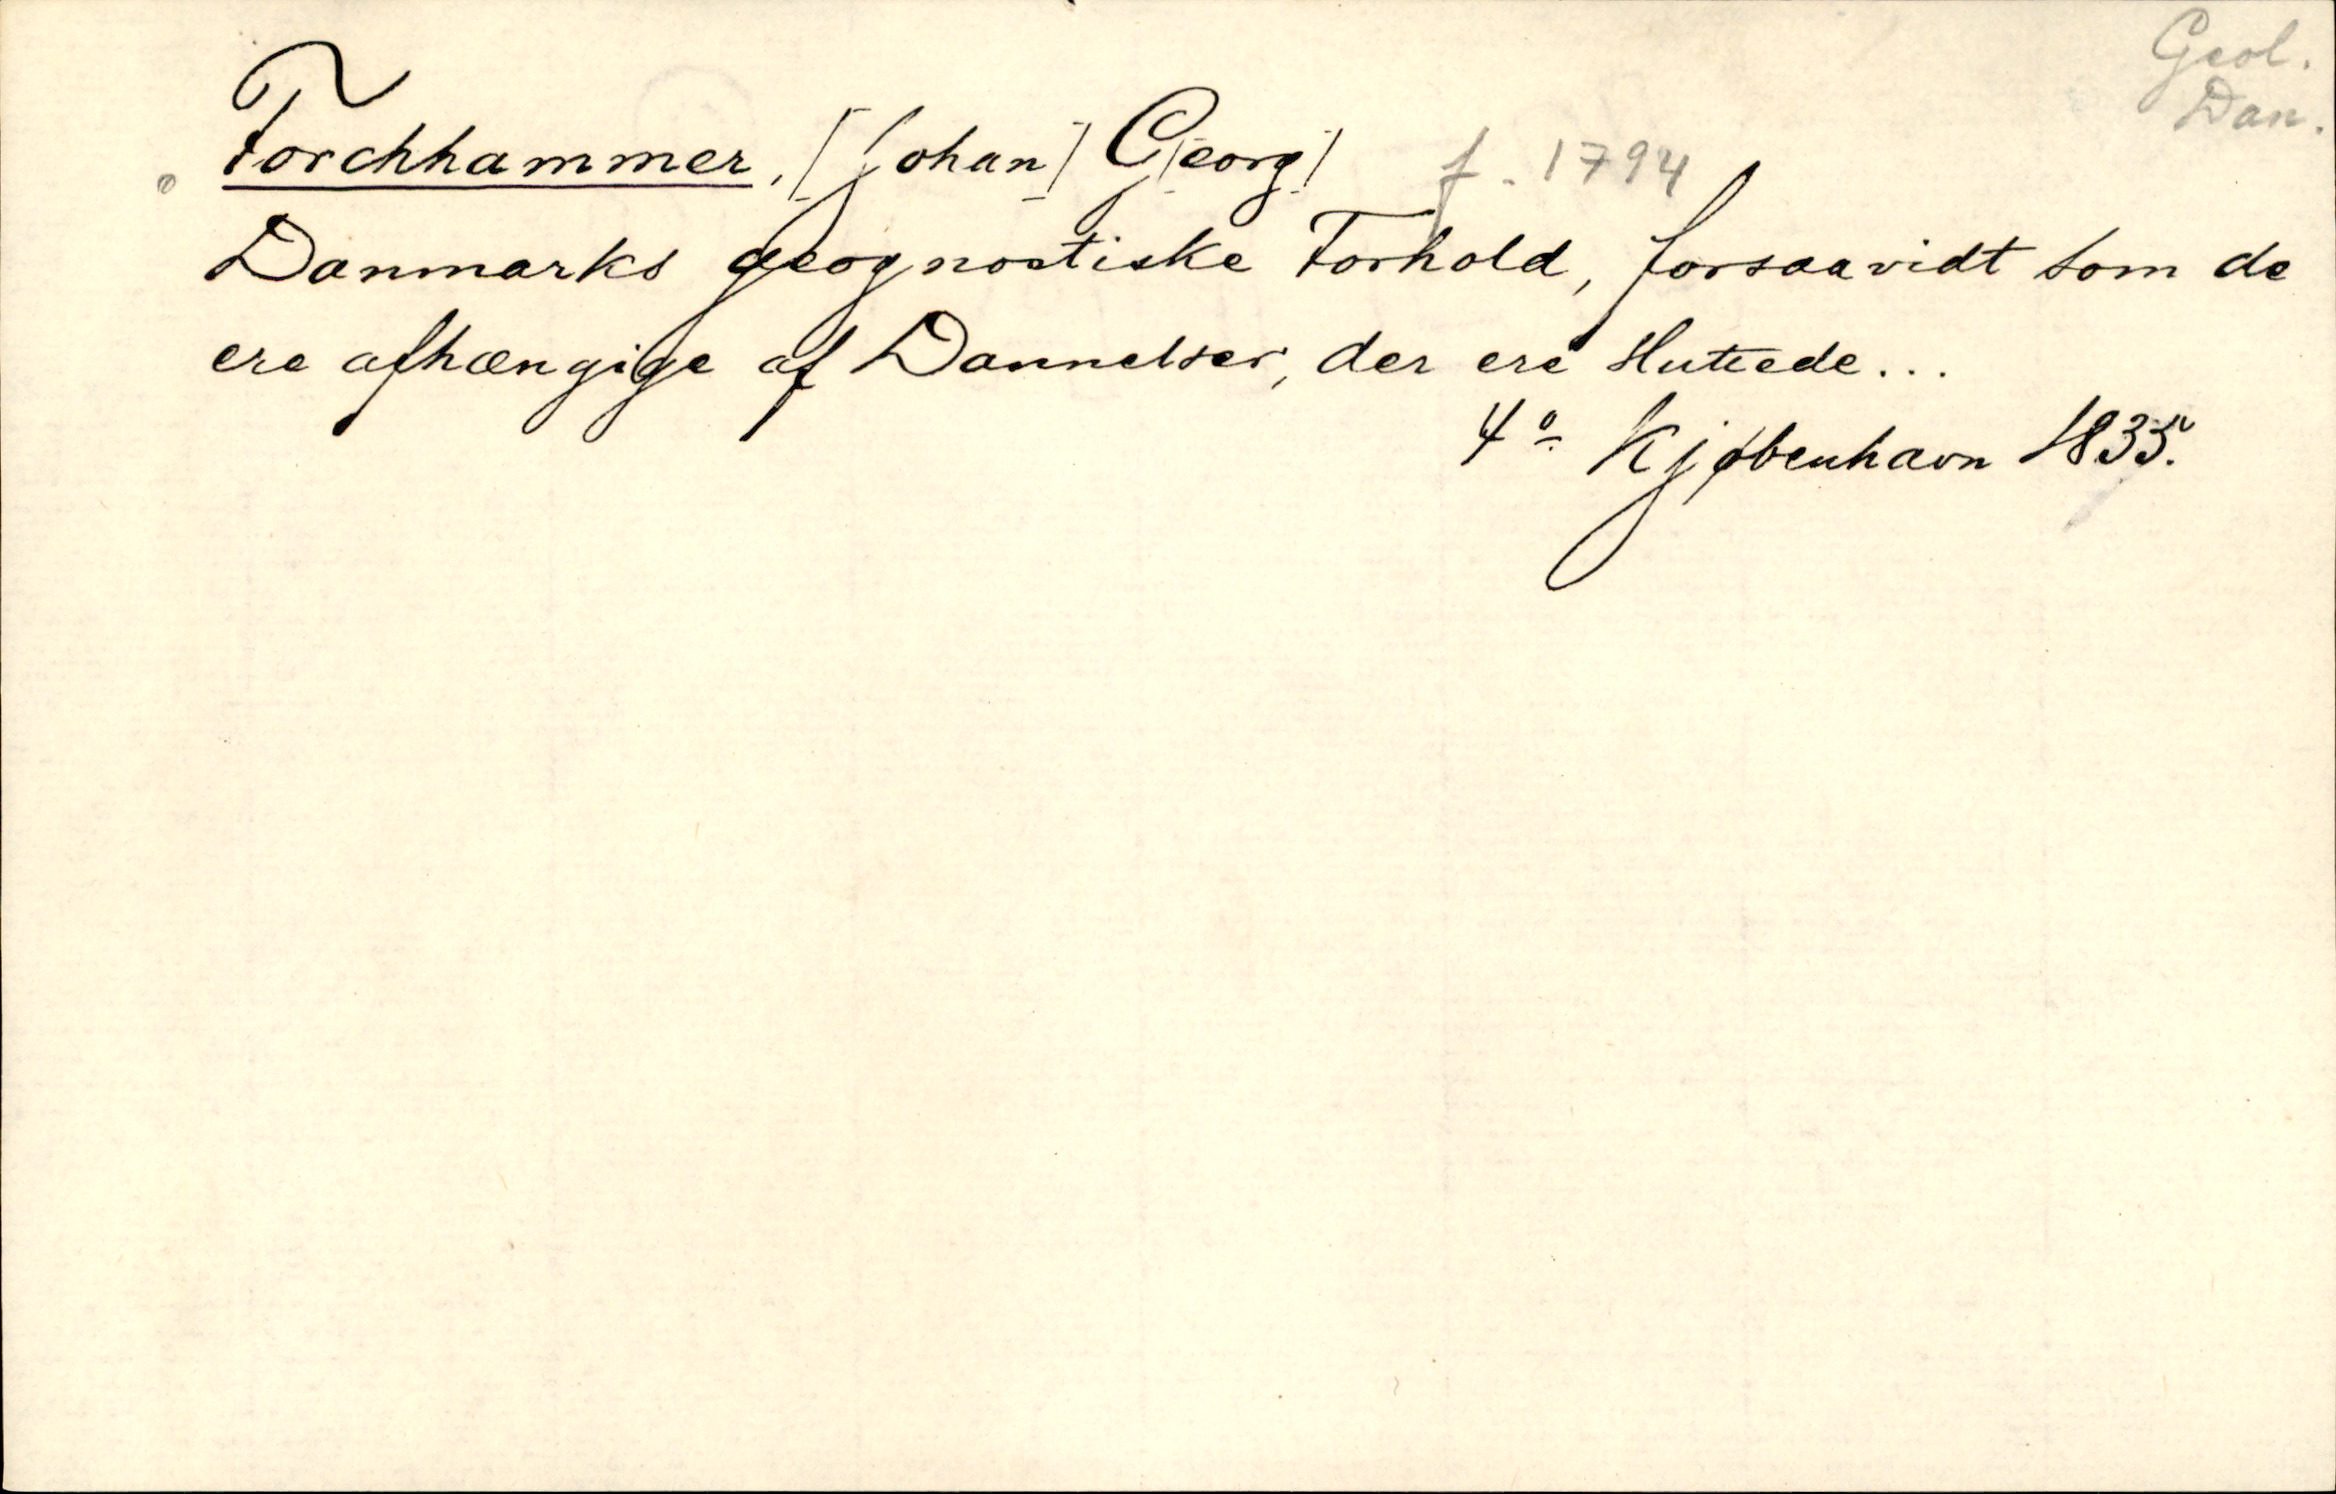 Geol.
Dan.
Forchhammer, [Johan] G[eorg] f. 1794
Danmarks geognostiske Forhold, forsaavidt som de
ere afhængige af Dannelser, der ere sluttede...
4º Kjøbenhavn 1835.